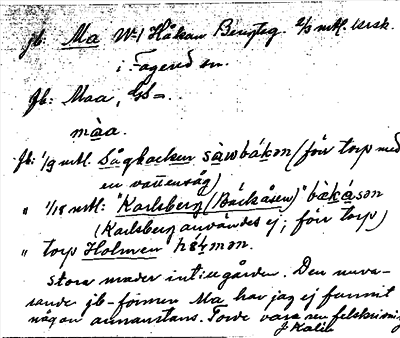 jb: Ma No 1 Håkan Bengtsg. 2/3 mtl. kr.sk.
i Fagered sn.
Jb: Maa, Gd=.
màa.
Jb: 1/9 mtl. Sågbacken sàwbákən (förr torp med
en vattensåg)
" 1/18 mtl: "Karlsberg (Bäckåsen)" bækåsən
(Karlsberg användes ej; förr torp)
" torp Holmen hɔ́lmən.
stora mader intill gården. Den nuva-
rande jb-formen Ma har jag ej funnit
någon annanstans. Torde vara en felskrivning
J Kalén